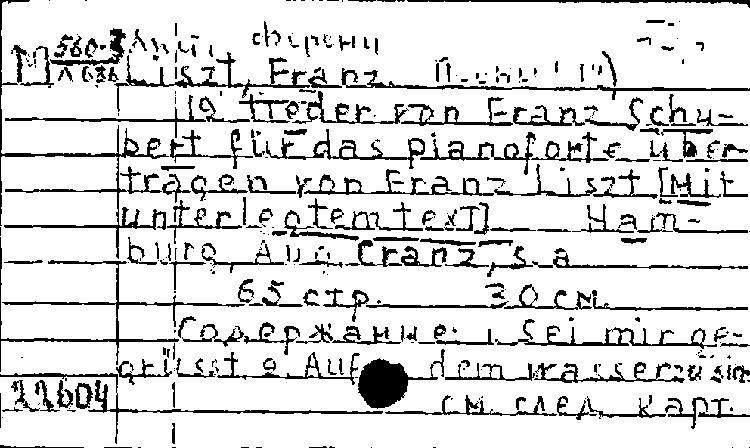 Лист, Ференц
М 560-3
Л 636
Liszt, Franz.
19 Lieder von Franz Schu-
bert für das pianoforte über-
tragen von Franz Liszt [Mit
unterlegtem text] Ham-
burg, Aug. Cranz, s. a.
65 стр. 30 см.
Содержание: 1. Sei mir ge-
grüsst 2. Auf dem wasser zu sin
22604
см. след. карт.